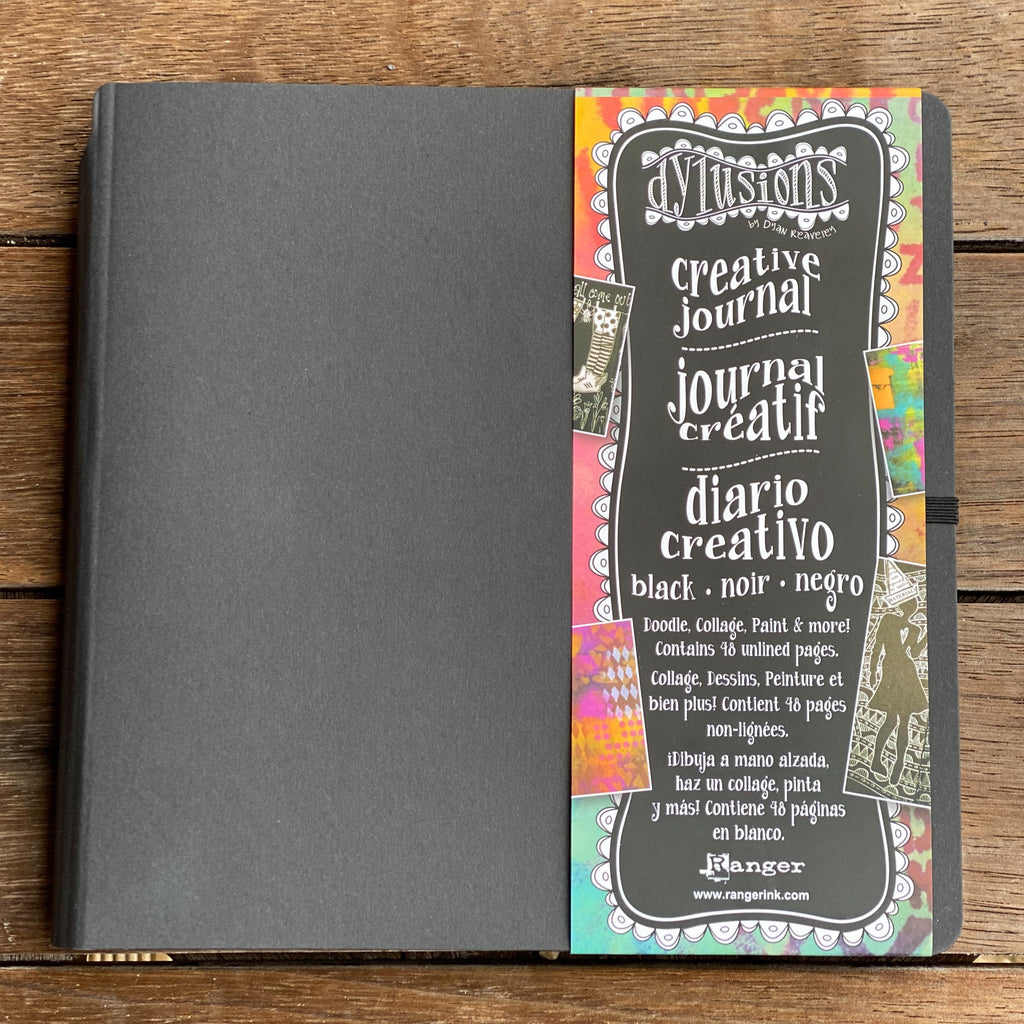 dylusions
by Dyan Reaveley
creative
journal
journal
créatif
diario
creativo
black • noir • negro
Doodle, Collage, Paint & more!
Contains 48 unlined pages.
Collage, Dessins, Peinture et
bien plus! Contient 48 pages
non-lignées.
¡Dibuja a mano alzada,
haz un collage, pinta
y más! Contiene 48 páginas
en blanco.
Ranger
www.rangerink.com
all come out